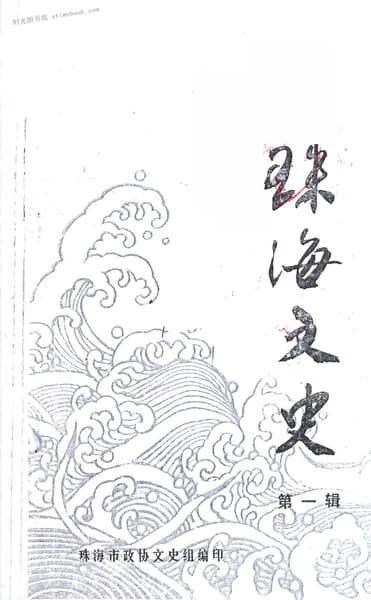 时光图书馆 xtimebook.com
珠海文史
第一辑
珠海市政协文史组编印